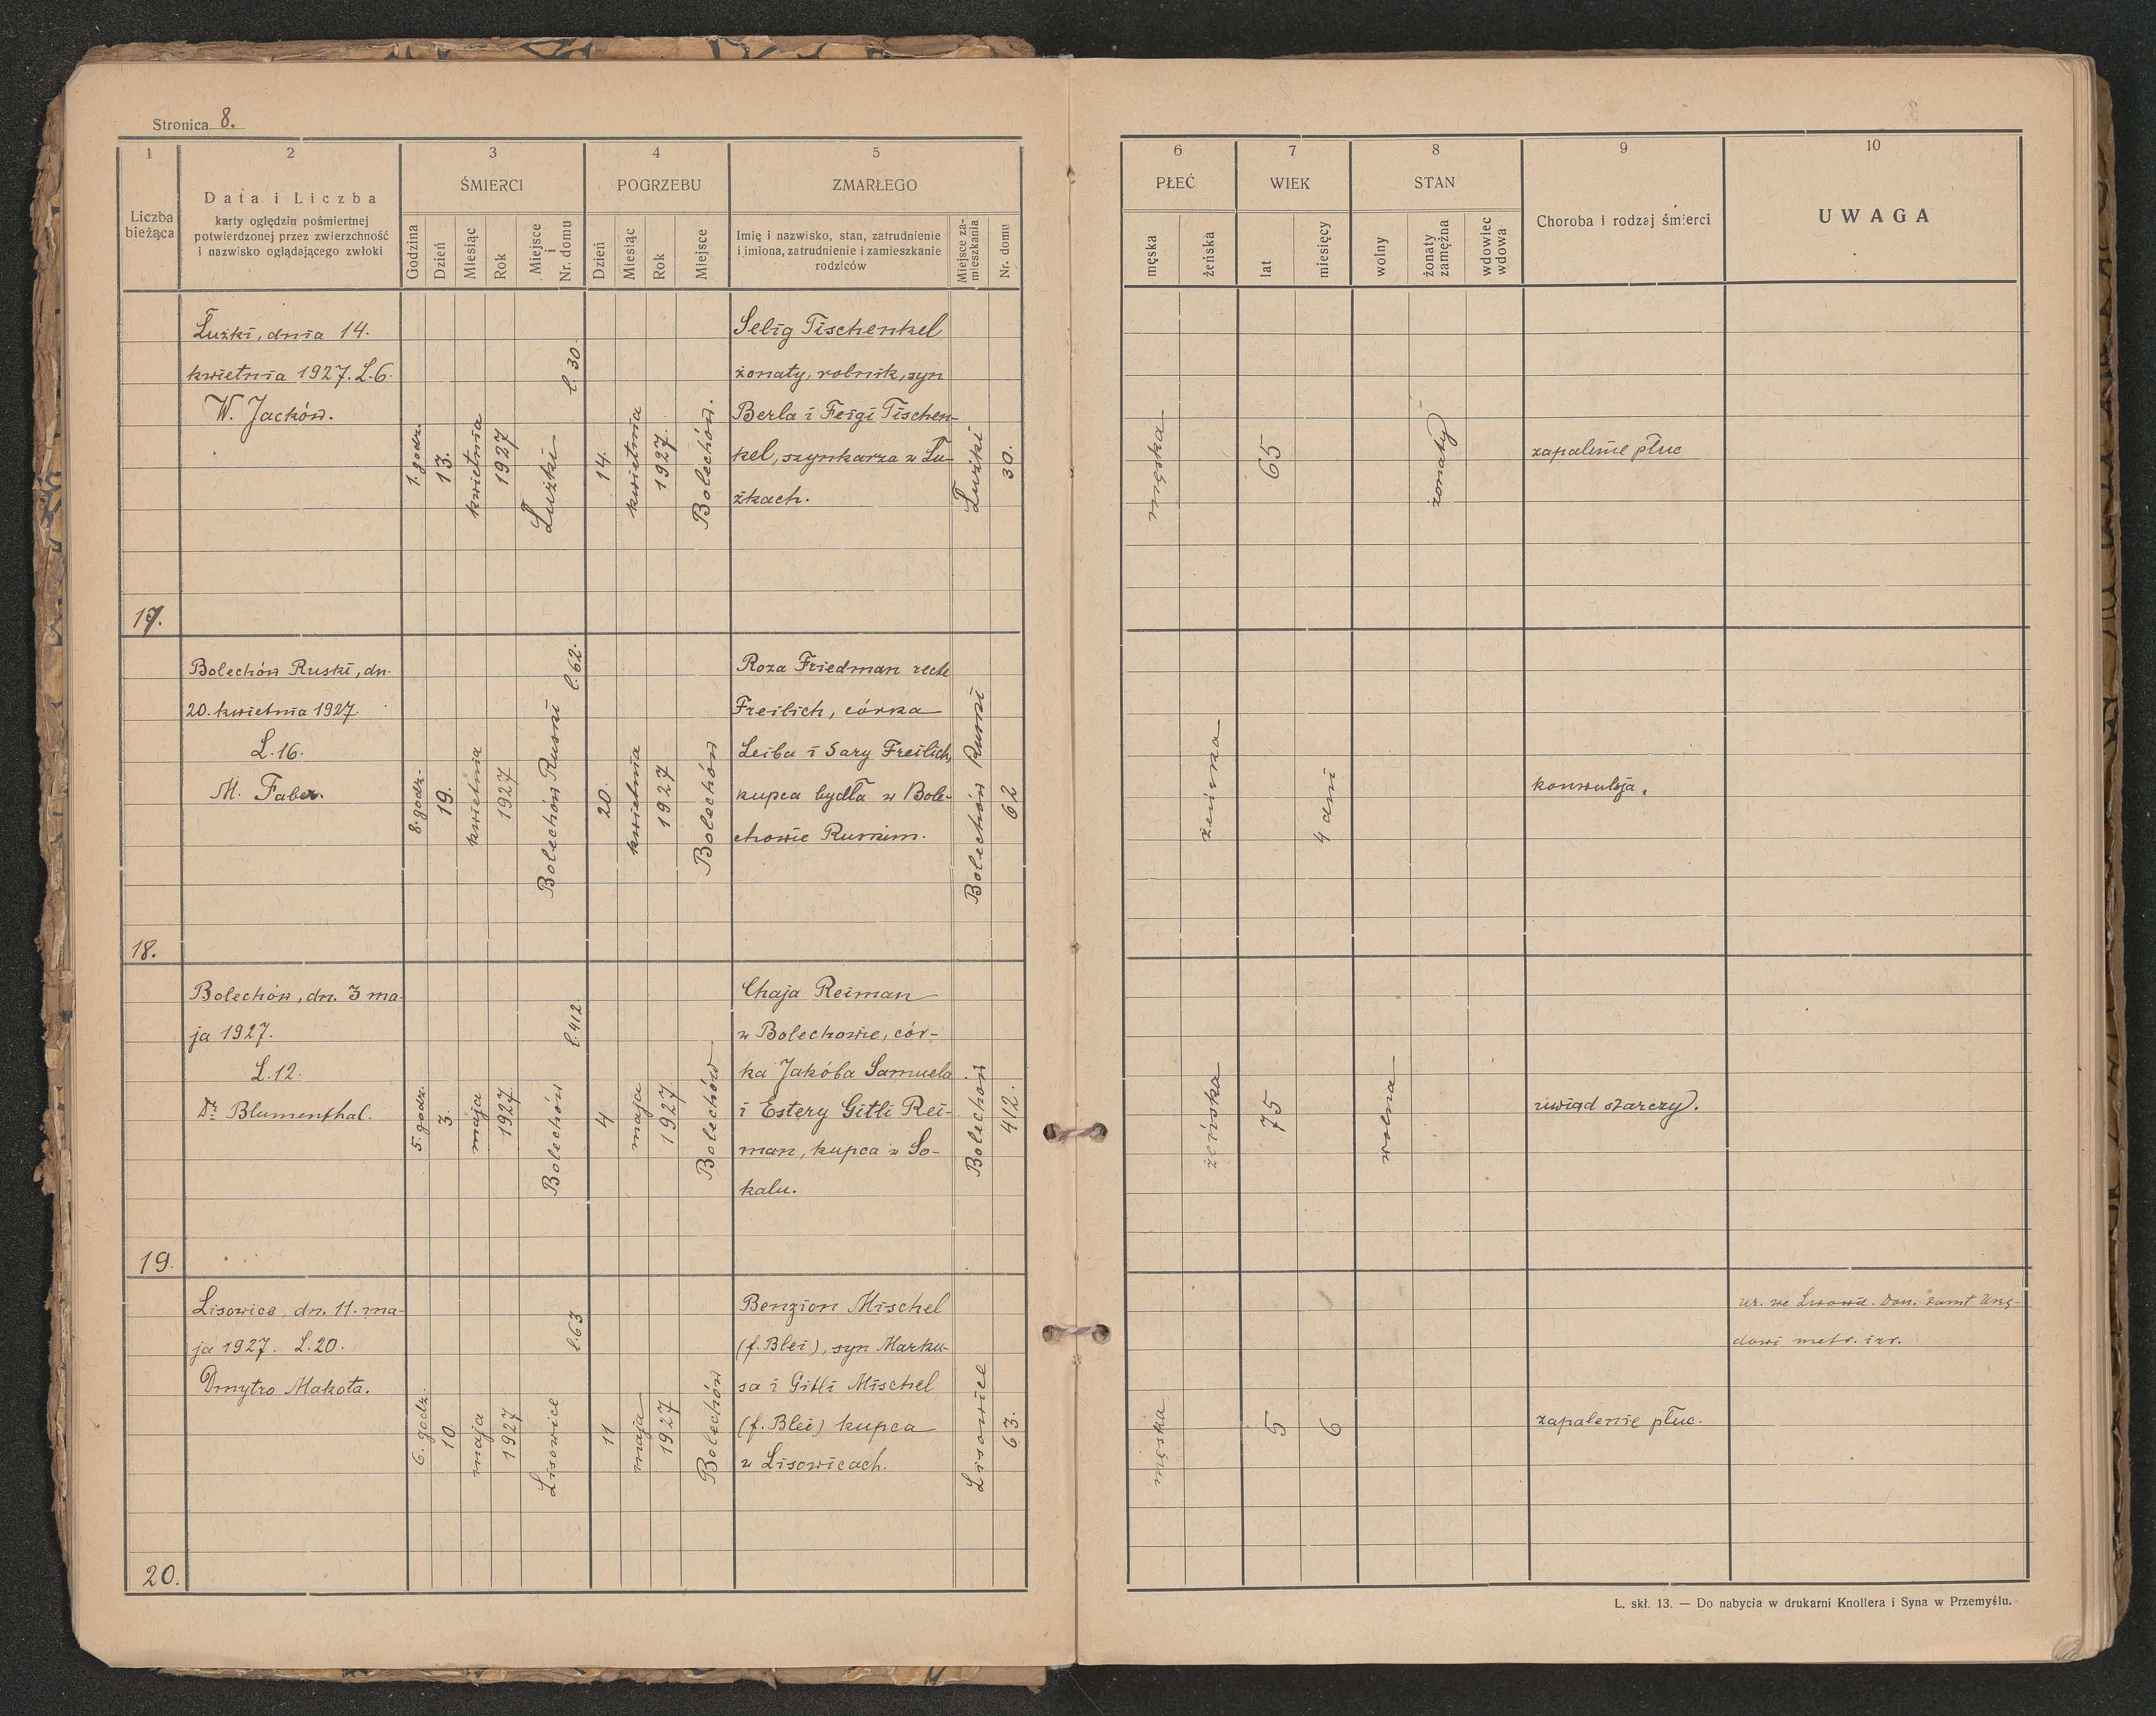 Stronica 8.
1
2
3
4
5
Liczba bieżąca
Data i Liczba
karty oględzin pośmiertnej
potwierdzonej przez zwierzchność
i nazwisko oglądającego zwłoki
ŚMIERCI
Godzina
Dzień
Miesiąc
Rok
Miejsce i Nr. domu
POGRZEBU
Dzień
Miesiąc
Rok
Miejsce
ZMARŁEGO
Imię i nazwisko, stan, zatrudnienie
i imiona, zatrudnienie i zamieszkanie
rodziców
Miejsce za-
mieszkania
Nr. domu
6
7
8
9
10
PŁEĆ
męska
żeńska
WIEK
lat
miesięcy
STAN
wolny
żonaty
zamężna
wdowiec
wdowa
Choroba i rodzaj śmierci
UWAGA
17.
Łużki, dnia 14.
kwietnia 1927. L.6.
W. Jacków.
1. godz.
13.
kwietnia
1927
Łużki
l. 30.
14.
kwietnia
1927.
Bolechów.
Selig Tischenkel
żonaty, rolnik, syn
Berla i Feigi Tischen-
kel, szynkarza w Łu-
żkach.
Łużki
30.
męska
65
żonaty
zapalenie płuc
18.
Bolechów Ruski, dn.
20. kwietnia 1927.
L.16.
M. Faber.
8. godz.
19.
kwietnia
1927
Bolechów Ruski
l. 62.
20.
kwietnia
1927
Bolechów
Roza Friedman recte
Freilich, córka
Leiba i Sary Freilich,
kupca bydła w Bole-
chowie Ruskim.
Bolechów Ruski
62
żeńska
4 dni
konwulsja.
19.
Bolechów, dn. 3 ma-
ja 1927.
L.12.
Dr. Blumenthal.
5. godz.
3.
maja
1927.
Bolechów
l. 412
4
maja
1927.
Bolechów
Chaja Reiman
w Bolechowie, cór-
ka Jakóba Samuela
i Estery Gitli Rei-
man, kupca w So-
kalu.
Bolechów
412.
żeńska
75
wolna
uwiąd starczy.
20.
Lisowice, dn. 11. ma-
ja 1927. L.20.
Dmytro Makota.
6. godz.
10.
maja
1927
Lisowice
l.63
11
maja
1927
Bolechów
Benzion Mischel
(f. Blei), syn Marku-
sa i Gitli Mischel
(f. Blei) kupca
w Lisowicach.
Lisowice
63.
męska
5
6
zapalenie płuc.
ur. we Lwowie. Don. tamt Urzę-
dowi metr. izr.
L. skł. 13. — Do nabycia w drukarni Knollera i Syna w Przemyślu.